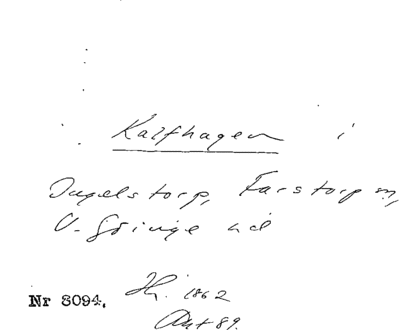 Kalfhagen i
Ingelstorp, Farstorp sn,
V. Göinge hd
Nr 8094. Hj. 1862
Akt 89.